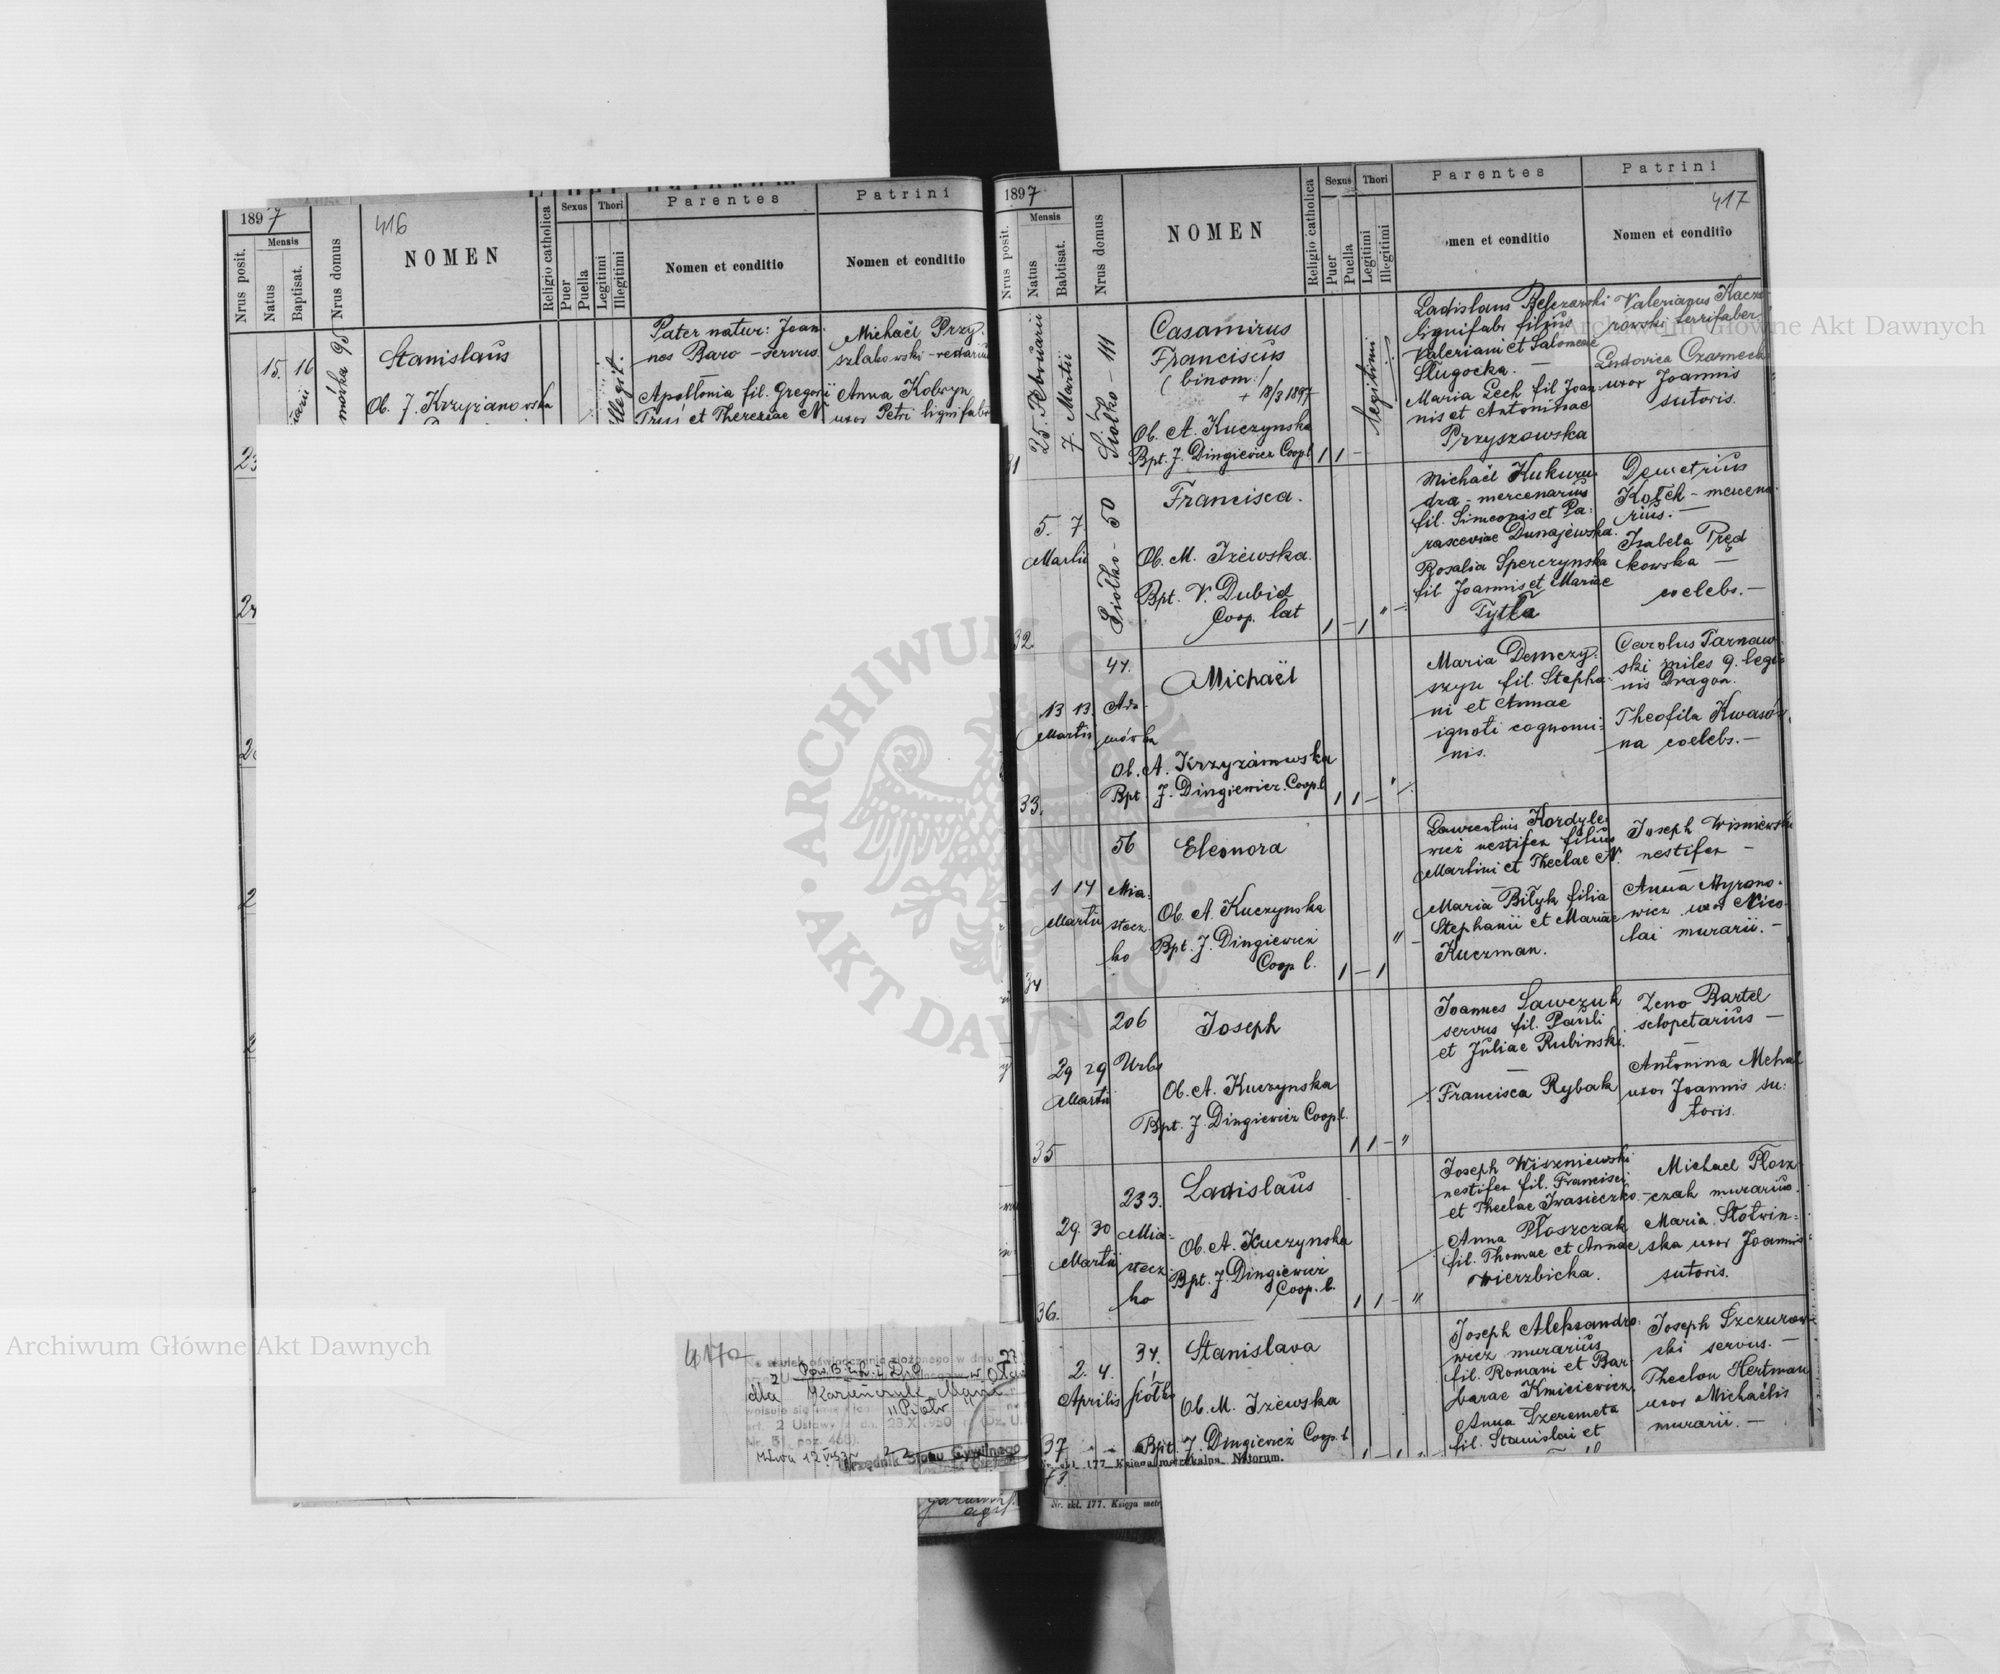 1897
416
Nrus posit.
Mensis
Natus
Baptisat.
Nrus domus
NOMEN
Religio catholica
Sexus
Puer
Puella
Thori
Legitimi
Illegitimi
Parentes
Nomen et conditio
Patrini
Nomen et conditio
15. 16
mórka 95
Stanislaus
Ob. J. Krzyżanowska
Illegit.
Pater natur: Joan-
nes Baro - servus.
Apollonia fil. Gregorii
et Thereziae N
Michaël Przy
szlakowski - vestiarius
Anna Kobryn
uxor Petri lignifabri
1897
417
Nrus posit.
Mensis
Natus
Babtisat.
Nrus domus
NOMEN
Religio catholica
Sexus
Puer
Puella
Thori
Legitimi
Illegitimi
Parentes
men et conditio
Patrini
Nomen et conditio
31
25. Februarii
7. Martii
Siółko - 111
Casamirus
Franciscus
(binom:)
+ 18/3 1897
Ob. A. Kuczynska
Bpt. J. Dingiewicz Coop l
1 1 -
legitimi
Ladislaus Belczarski
lignifabr filius
Valeriani et Salomeae
Sługocka. -
Maria Lech fil Joan-
nis et Antoninae
Przyszowska
Valerianus Kacza-
rowski ferrifaber
Ludovica Czarnecka
uxor Joannis
sutoris.
32.
5. 7
Martii
Siółko - 50
Francisca.
Ob. M. Iżewska.
Bpt. V. Dubid
Coop. lat
1 - 1 " -
Michaël Kukuru-
dza - mercenarius
fil. Simeonis et Pa-
rasceviae Dunajewska.
Rosalia Sperczynska
fil Joannis et Mariae
Tytła
Demetrius
- mercena-
rius. -
Izabela Pręd
kowska -
coelebs. -
33.
13 13.
Martii
47.
Ada-
mówka
Michaël
Ob. A. Krzyżanowska
Bpt J. Dingiewicz. Coop. l
1 1 - "
Maria Demczy-
szyn fil. Stepha-
ni et Annae
ignoti cognomi-
nis.
Carolus Tarnaw-
ski miles 9. legio
nis Dragon.
Theofila Kwasów-
na coelebs. -
34
1 14
Martii
56
Mia-
stecz
ko
Eleonora
Ob. A. Kuczynska
Bpt. J. Dingiewicz
Coop l.
1 - 1 " -
Laurentius Kordyle-
wicz vestifex filius
Martini et Theclae N.
Maria Biłyk filia
Stephanii et Mariae
Kuczman.
Joseph Wisniewski
vestifex -
Anna Myrono-
wicz uxor Nico-
lai murarii. -
35
29 29
Martii
206
Urbs
Joseph
Ob. A. Kuczynska
Bpt. J. Dingiewicz Coop. l.
1 1 - "
Joannes Sawczuk
servus fil. Pauli
et Juliae Rubinski.
Francisca Rybak
Zeno Bartel
sclopetarius -
Antonina Mehal
uxor Joannis su-
toris.
36.
29. 30
Martii
233.
Mia-
stecz
ko
Ladislaus
Ob. A. Kuczynska
Bpt. J. Dingiewicz
Coop. l.
1 1 - "
Joseph Wiszniewski
vestifex fil. Francisci
et Theclae Iwasieczko.
Anna Płoszczak
fil. Thomae et Annae
Wierzbicka.
Michael Płosz-
czak murarius.
Maria Słotwin-
ska uxor Joannis
sutoris.
37
2. 4.
Aprilis
34.
Siółko
Stanislava
Ob. M. Iżewska
Bpt. J. Dingiewicz Coop. l
Joseph Aleksandro-
wicz murarius
fil. Romani et Bar
barae Kmiciewicz.
Anna Szeremeta
fil. Stanislai et
Joseph Szczurow-
ski servus. -
Theclau Hertman
uxor Michaelis
murarii. -
177. Księga metrykalna. Natorum.
Nr. skł. 177. Księga metr
417a
Na skutek oświadczenia złożonego w dniu
dla
"Piotr"
wpisuje się
art. 2 Ustawy z dn. 28 X 1950 r. (Dz. U.
Nr. 51, poz. 468).
Urzędnik Stanu Cywilnego
Archiwum Główne Akt Dawnych
Archiwum Główne Akt Dawnych
ARCHIWUM GŁÓWNE • AKT DAWNYCH •